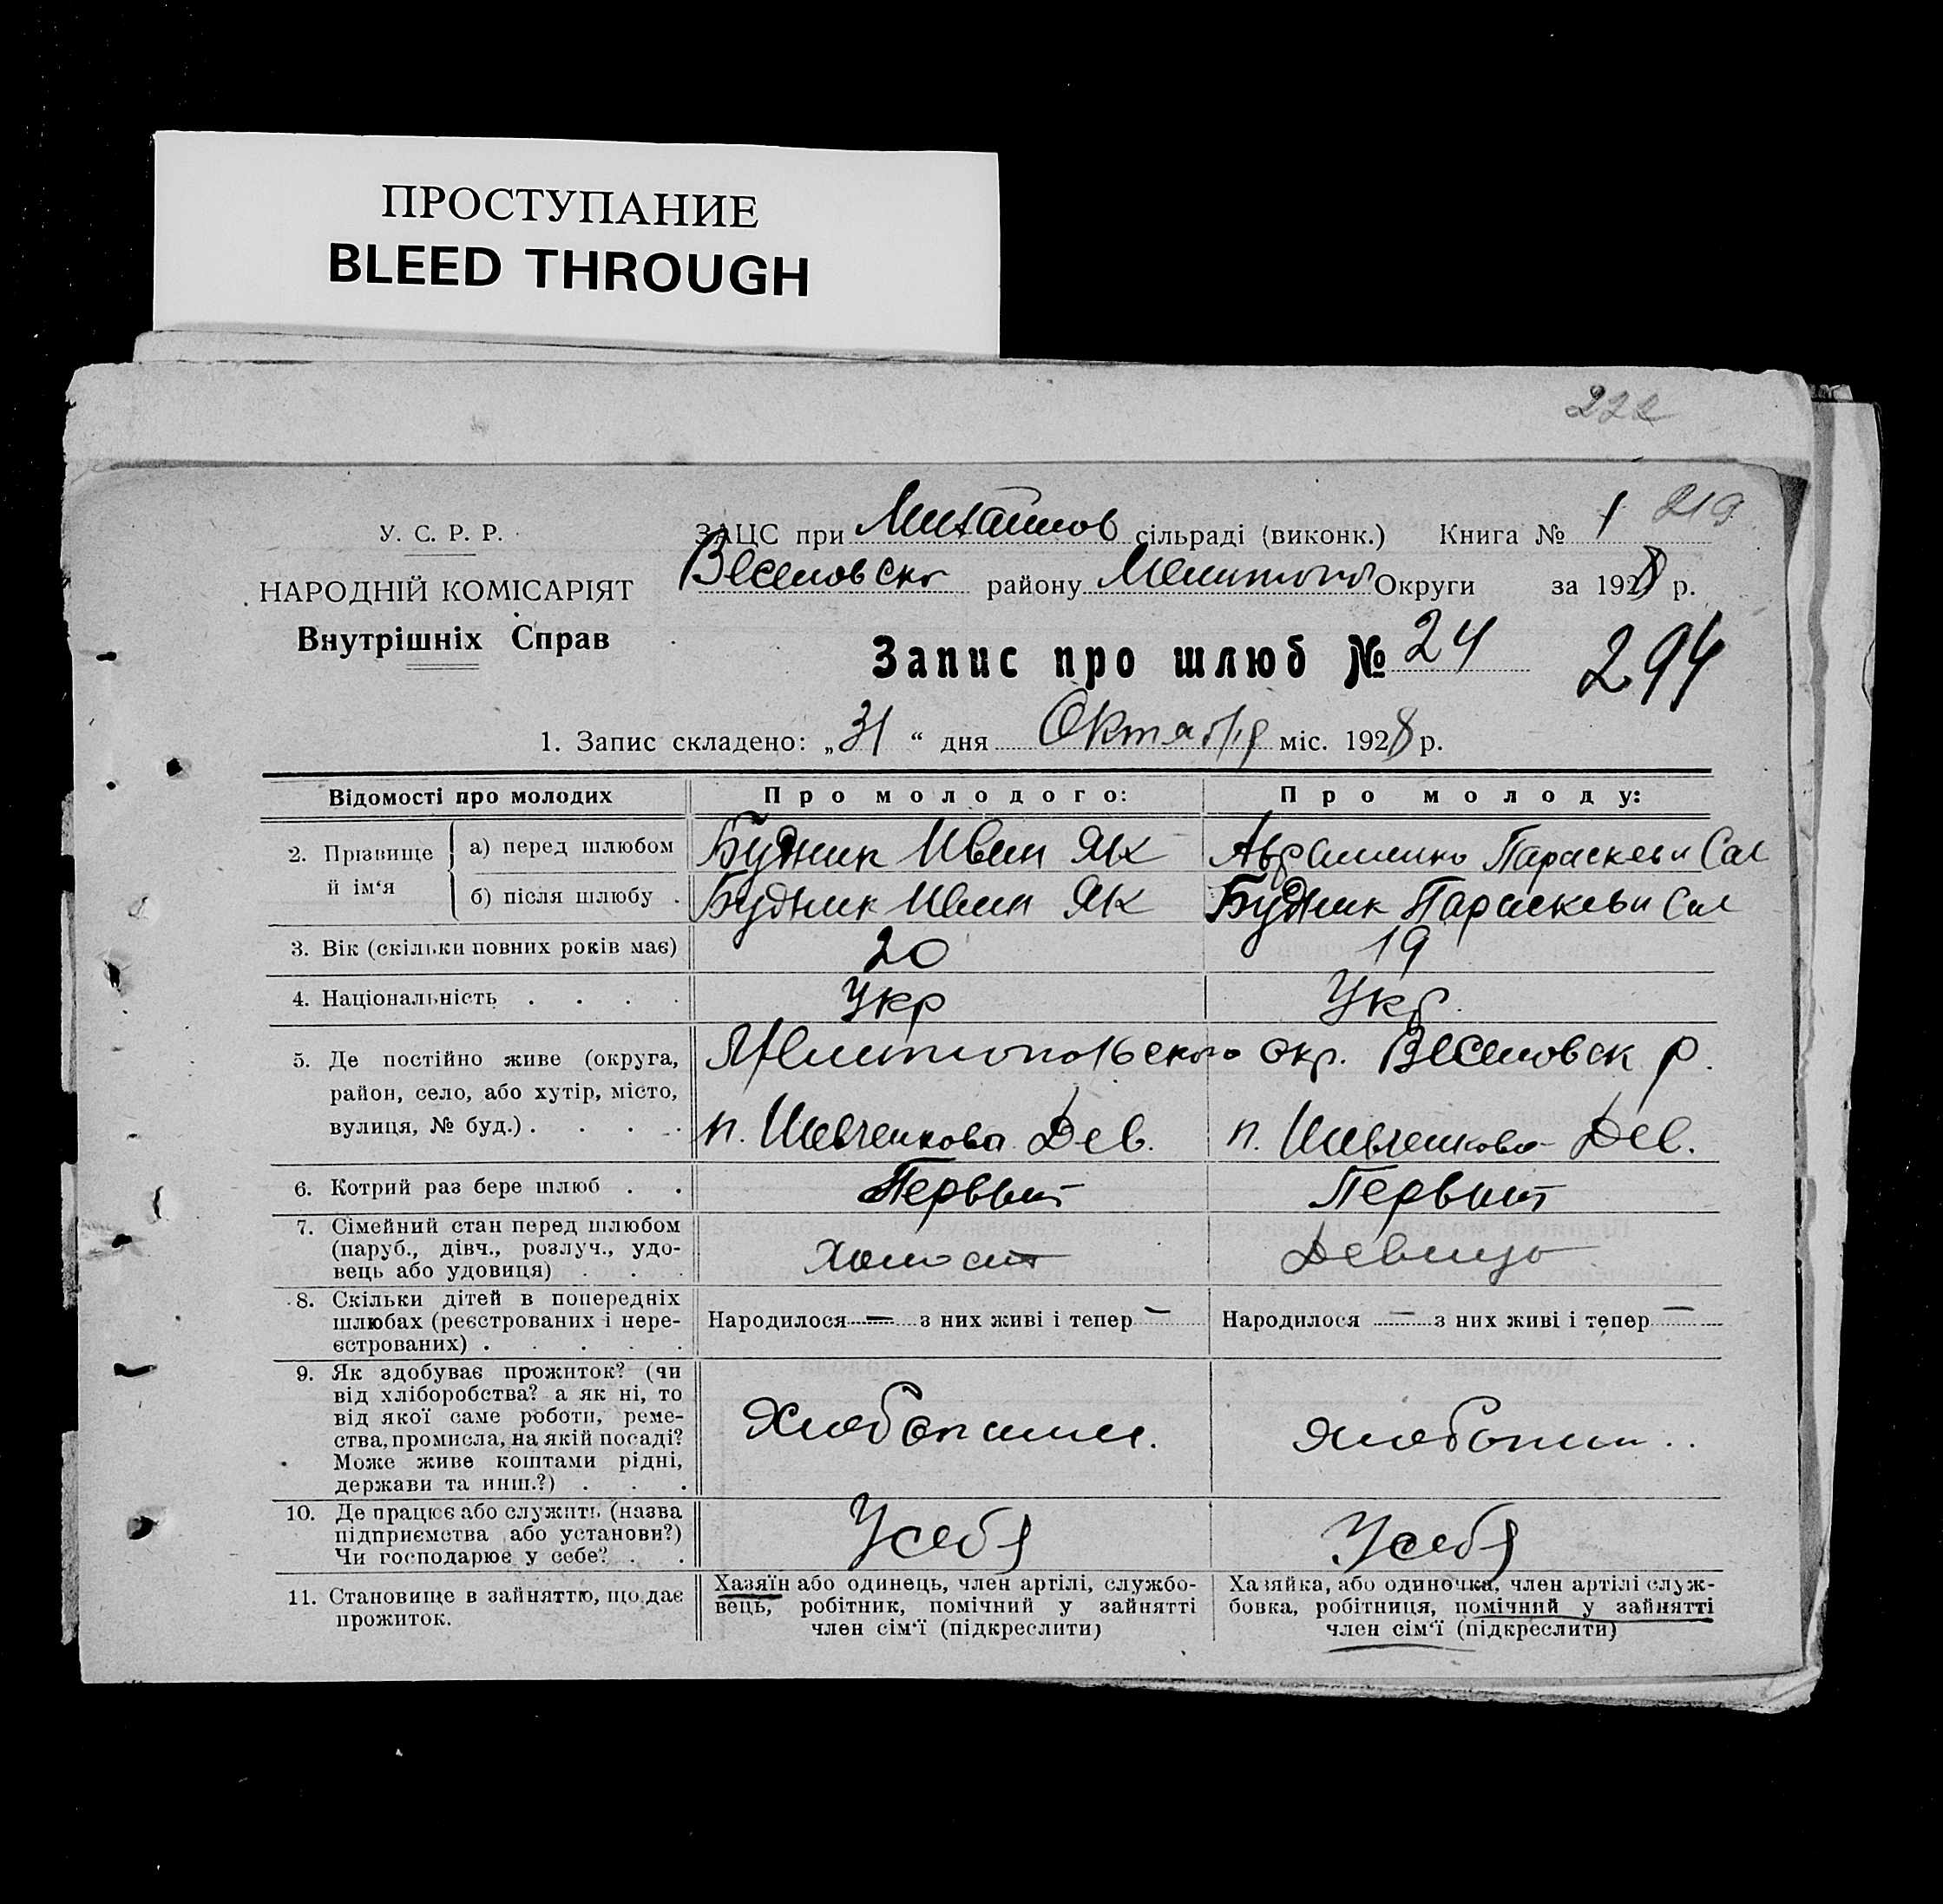 ПРОСТУПАНИЕ
BLEED THROUGH
222
У. С. Р. Р.
НАРОДНІЙ КОМІСАРІЯТ
Внутрішніх Справ
ЗАЦС при Михайлов сільраді (виконк.) Книга № 1 219
Веселовско району Мелитопол Округи за 1928 р.
Запис про шлюб № 24 294
1. Запис складено: „31“ дня Октября міс. 1928 р.
Відомості про молодих Про молодого: Про молоду:
2. Прізвище й ім‘я
а) перед шлюбом Будник Иван Як Авраменко Параскеви Сав
б) після шлюбу . Будник Иван Як Будник Параскеви Сав
3. Вік (скільки повних років має) 20 19
4. Національність . . . . Укр Укр.
5. Де постійно живе (округа, Мелитопольского окр. Веселовск р.
район, село, або хутір, місто,
вулиця, № буд.) . . . . п. Шевченкова Дев. п. Шевченково Дев.
6. Котрий раз бере шлюб . . Первый Первый
7. Сімейний стан перед шлюбом
(паруб., дівч., розлуч., удо-
вець або удовиця) . . . Холост Девица
8. Скільки дітей в попередніх
шлюбах (реєстрованих і нере-
єстрованих) . . . . .
Народилося — з них живі і тепер — Народилося — з них живі і тепер —
9. Як здобуває прожиток? (чи
від хліборобства? а як ні, то
від якої саме роботи, реме-
ства, промисла, на якій посаді?
Може живе коштами рідні,
держави та инш.?) . . .
Хлебопаши. Хлебопаш..
10. Де працює або служить (назва
підприємства або установи?)
Чи господарює у себе? . .
У себя У себя
11. Становище в зайняттю, що дає
прожиток.
Хазяїн або одинець, член аргілі, службо-
вець, робітник, помічний у зайнятті
член сім‘ї (підкреслити)
Хазяйка, або одиночка, член артілі служ-
бовка, робітниця, помічний у зайнятті
член сім‘ї (підкреслити)